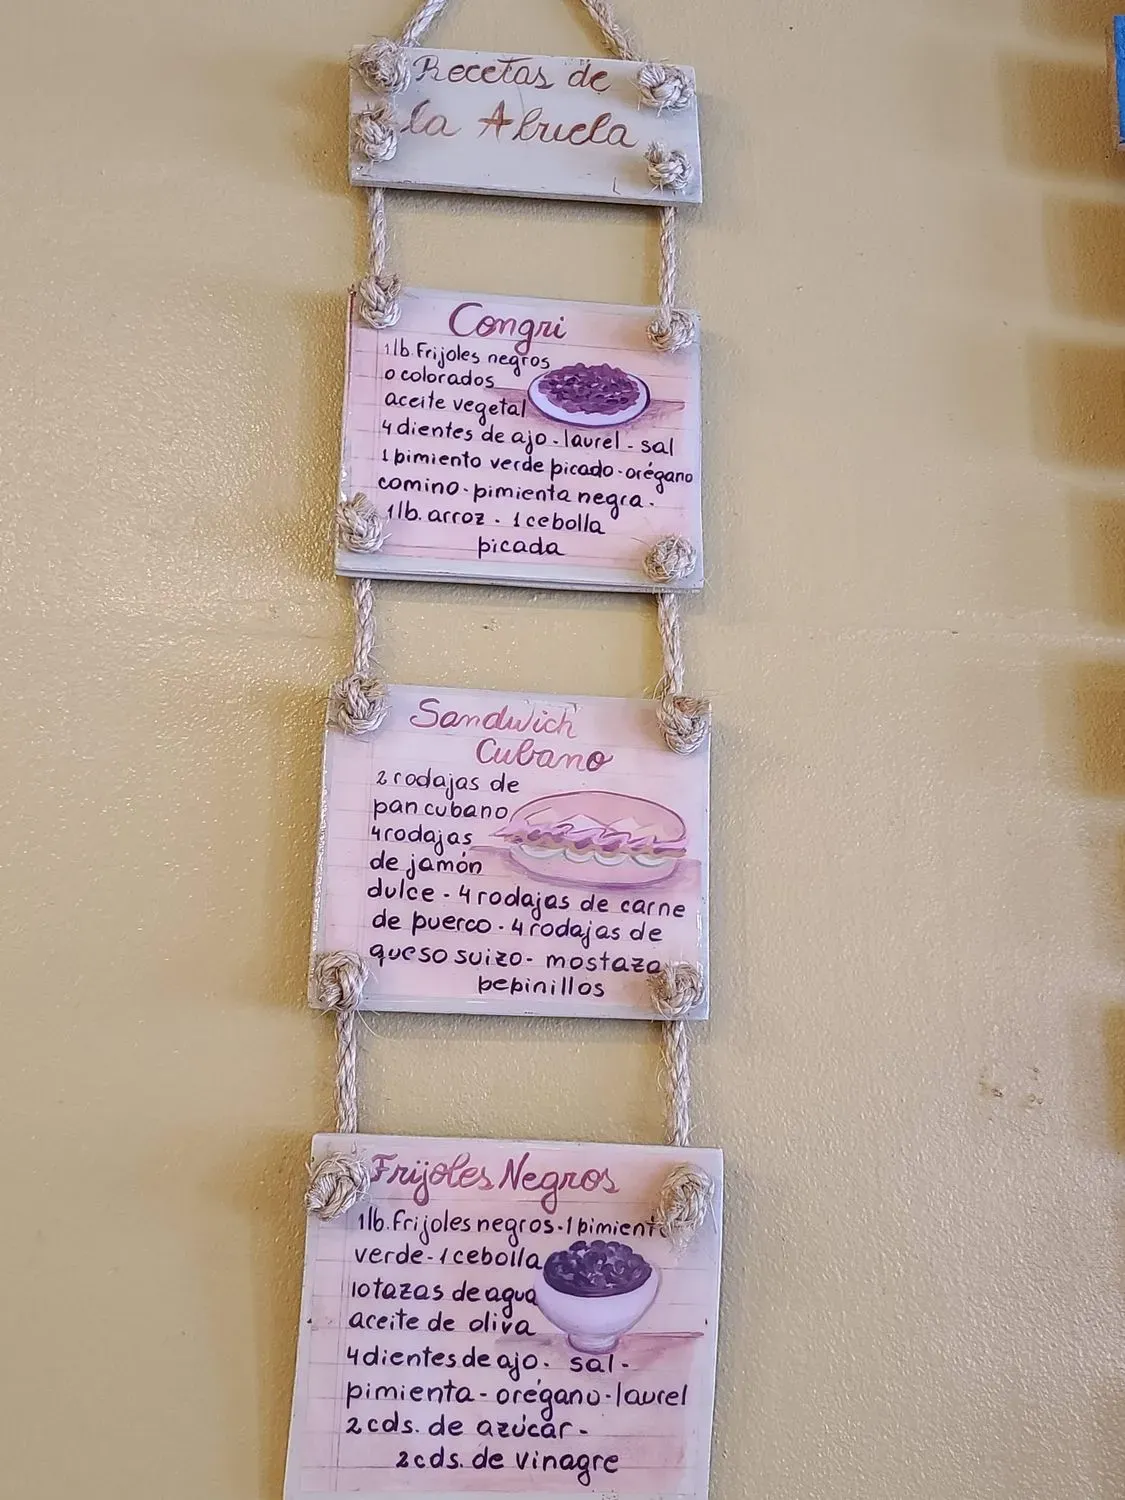 Recetas de
la Abuela
Congri
1 lb. Frijoles negros
o colorados
aceite vegetal
4 dientes de ajo - laurel - sal
1 pimiento verde picado - orégano
comino - pimienta negra -
1 lb. arroz - 1 cebolla
picada
Sandwich
Cubano
2 rodajas de
pan cubano
4 rodajas
de jamón
dulce - 4 rodajas de carne
de puerco - 4 rodajas de
queso suizo - mostaza
pepinillos
Frijoles Negros
1 lb. frijoles negros - 1 pimiento
verde - 1 cebolla
10 tazas de agua
aceite de oliva
4 dientes de ajo - sal -
pimienta - orégano - laurel
2 cds. de azúcar -
2 cds. de vinagre